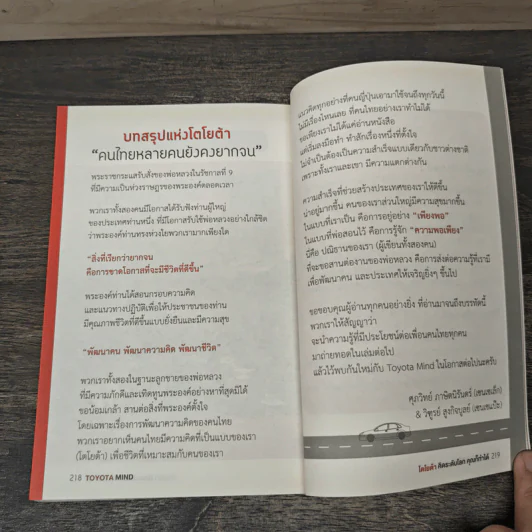 บทสรุปแห่งโตโยต้า
“คนไทยหลายคนยังคงยากจน”
พระราชกระแสรับสั่งของพ่อหลวงในรัชกาลที่ 9
ที่มีความเป็นห่วงราษฎรของพระองค์ตลอดเวลา
พวกเราทั้งสองคนมีโอกาสได้รับฟังท่านผู้ใหญ่
ของประเทศท่านหนึ่ง ที่มีโอกาสรับใช้พ่อหลวงอย่างใกล้ชิด
ว่าพระองค์ท่านทรงห่วงใยพวกเรามากเพียงใด
“สิ่งที่เรียกว่ายากจน
คือการขาดโอกาสที่จะมีชีวิตที่ดีขึ้น”
พระองค์ท่านได้สอนกรอบความคิด
และแนวทางปฏิบัติเพื่อให้ประชาชนของท่าน
มีคุณภาพชีวิตที่ดีขึ้นแบบยั่งยืนและมีความสุข
“พัฒนาคน พัฒนาความคิด พัฒนาชีวิต”
พวกเราทั้งสองในฐานะลูกชายของพ่อหลวง
ที่มีความภักดีและเทิดทูนพระองค์อย่างหาที่สุดมิได้
ขอน้อมเกล้า สานต่อสิ่งที่พระองค์ตั้งใจ
โดยเฉพาะเรื่องการพัฒนาความคิดของคนไทย
พวกเราอยากเห็นคนไทยมีความคิดที่เป็นแบบของเรา
(โตโยต้า) เพื่อชีวิตที่เหมาะสมกับคนของเรา
218 TOYOTA MIND
แนวคิดทุกอย่างที่คนญี่ปุ่นเอามาใช้จนถึงทุกวันนี้
ไม่มีเรื่องไหนเลย ที่คนไทยอย่างเราทำไม่ได้
ขอเพียงเราไม่ได้แค่อ่านหนังสือ
แต่เริ่มลงมือทำ ทำสักเรื่องหนึ่งที่ตั้งใจ
ไม่จำเป็นต้องเป็นความสำเร็จแบบเดียวกับชาวต่างชาติ
เพราะทั้งเราและเขา มีความแตกต่างกัน
ความสำเร็จที่ช่วยสร้างประเทศของเราให้ดีขึ้น
น่าอยู่มากขึ้น คนของเราส่วนใหญ่มีความสุขมากขึ้น
ในแบบที่เราเป็น คือการอยู่อย่าง “เพียงพอ”
ในแบบที่พ่อสอนไว้ คือการรู้จัก “ความพอเพียง”
นี่คือ ปณิธานของเรา (ผู้เขียนทั้งสองคน)
ที่จะขอสานต่องานของพ่อหลวง คือการส่งต่อความรู้ที่เรามี
เพื่อพัฒนาคน และประเทศให้เจริญยิ่งๆ ขึ้นไป
ขอขอบคุณผู้อ่านทุกคนอย่างยิ่ง ที่อ่านมาจนถึงบรรทัดนี้
พวกเราให้สัญญาว่า
จะนำความรู้ที่มีประโยชน์ต่อเพื่อนคนไทยทุกคน
มาถ่ายทอดในเล่มต่อไป
แล้วไว้พบกันใหม่กับ Toyota Mind ในโอกาสต่อไปนะครับ
ศุภวิทย์ ภาษิตนิรันดร์ (เซนเซเล็ก)
& วิฑูรย์ สูงกิจบูลย์ (เซนเซแป๊ะ)
โตโยต้า คิดระดับโลก คุณก็ทำได้ 219